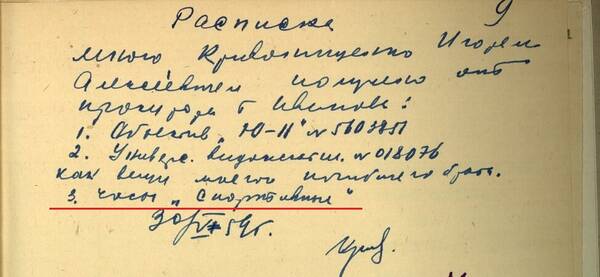 9
Расписка
мною Кривонищенко Игорем
Алексеевичем получено от
прокурора т. Иванова:
1. Объектив „Ю-11" №5603851
2. Универс. видоискатель №018076
как вещи моего погибшего брата.
3. часы „Спортивные"
30/VI 59г.
Крив.